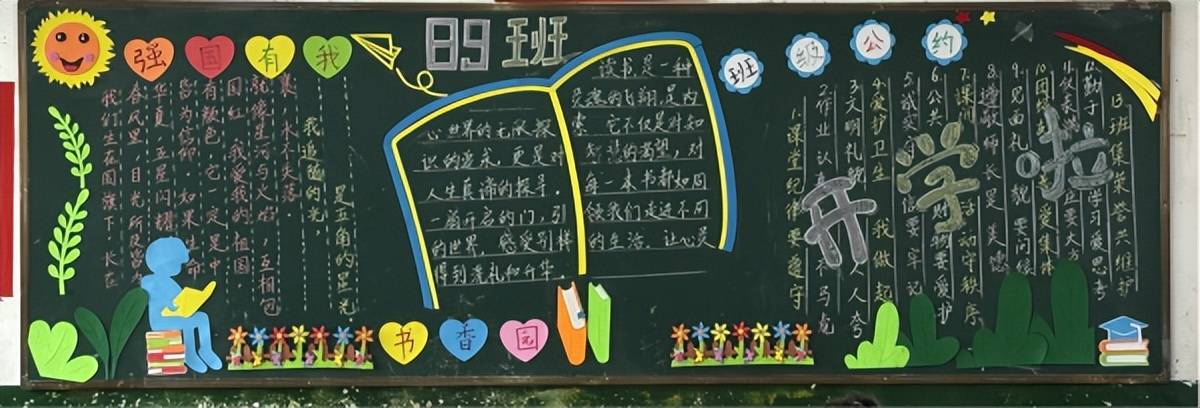 强国有我
89班
班级公约
我们生在国旗下 长在
春风里,目光所及皆为
华夏 五星闪耀
皆为信仰,如果生命
有颜色,它一定是中
国红,我爱我的祖国,
就像星河与火焰,互相包
裹,永不失落。
我追随的光,
是五角的星光.
读书,是一种
灵魂的飞翔,是内
心世界的无限探索。它不仅是对知
识的追求,更是对智慧的渴望,对
人生真谛的探寻。每一本书都如同
一扇开启的门,引领我们走进不同
的世界,感受别样的生活,让心灵
得到洗礼和升华.
1.课堂纪律要遵守
2.作业认真不马虎
3.文明礼貌人人夸
4.爱护卫生我做起
5.诚实 信要牢记
6.公共财物要爱护
7.课间活动守秩序
8.尊敬师长是美德
9.见面礼貌要问候
10.团结 爱集体
仪表 要大方
勤于学习爱思考
13.班集荣誉共维护
开学啦
书香园